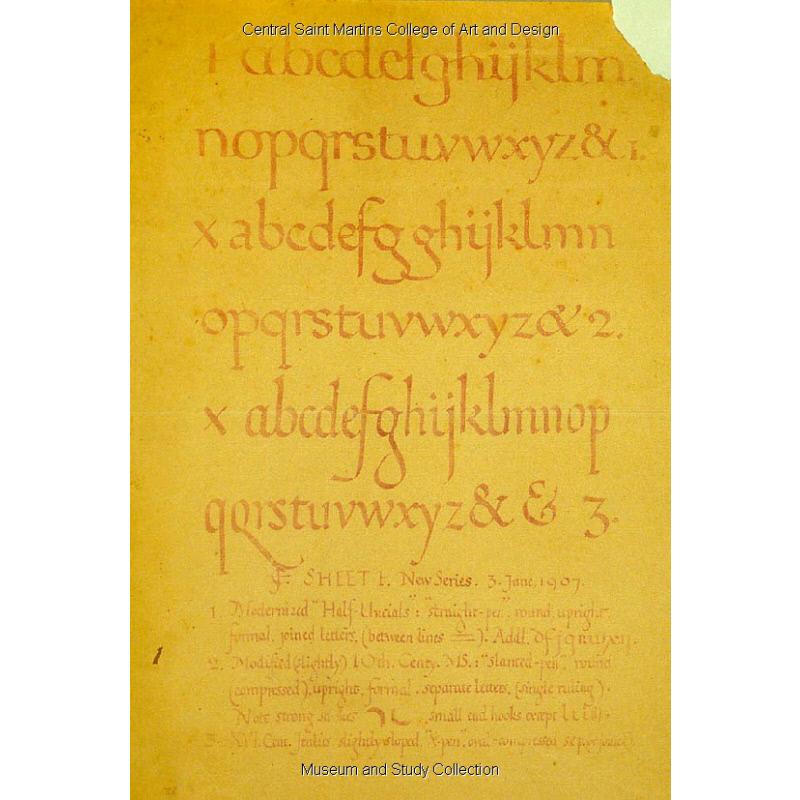 Central Saint Martins College of Art and Design
1 abcdefghijklm.
nopqrstuvwxyz& 1.
x abcdefgghijklmn
opqrstuvwxyz& 2.
x abcdefghijklmnop
qqrstuvwxyz& & 3.
SHEET 1. New Series. 3. June, 1907.
1. Modernized "Half-Uncials": "straight-pen", round, upright,
formal, joined letters, (between lines). Addl.
2. Modified (slightly) 10th. Centy. MS.: "slanted-pen", round
(compressed), upright, formal, separate letters, (single ruling).
Note strong small end hooks except
3. XVI. Cent. Italics slightly sloped,
Museum and Study Collection